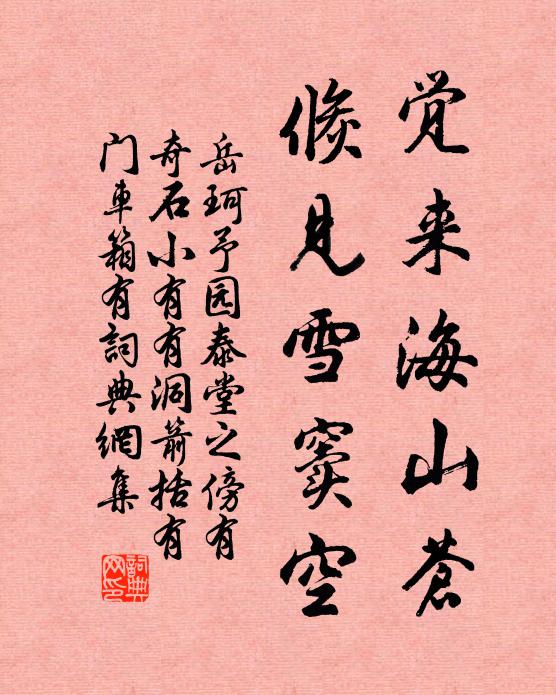 觉来海山苍
倏见雪窦空
岳珂予园泰堂之傍有
奇石小有有洞箭括有
门車箱有詞典網集
詞典网印